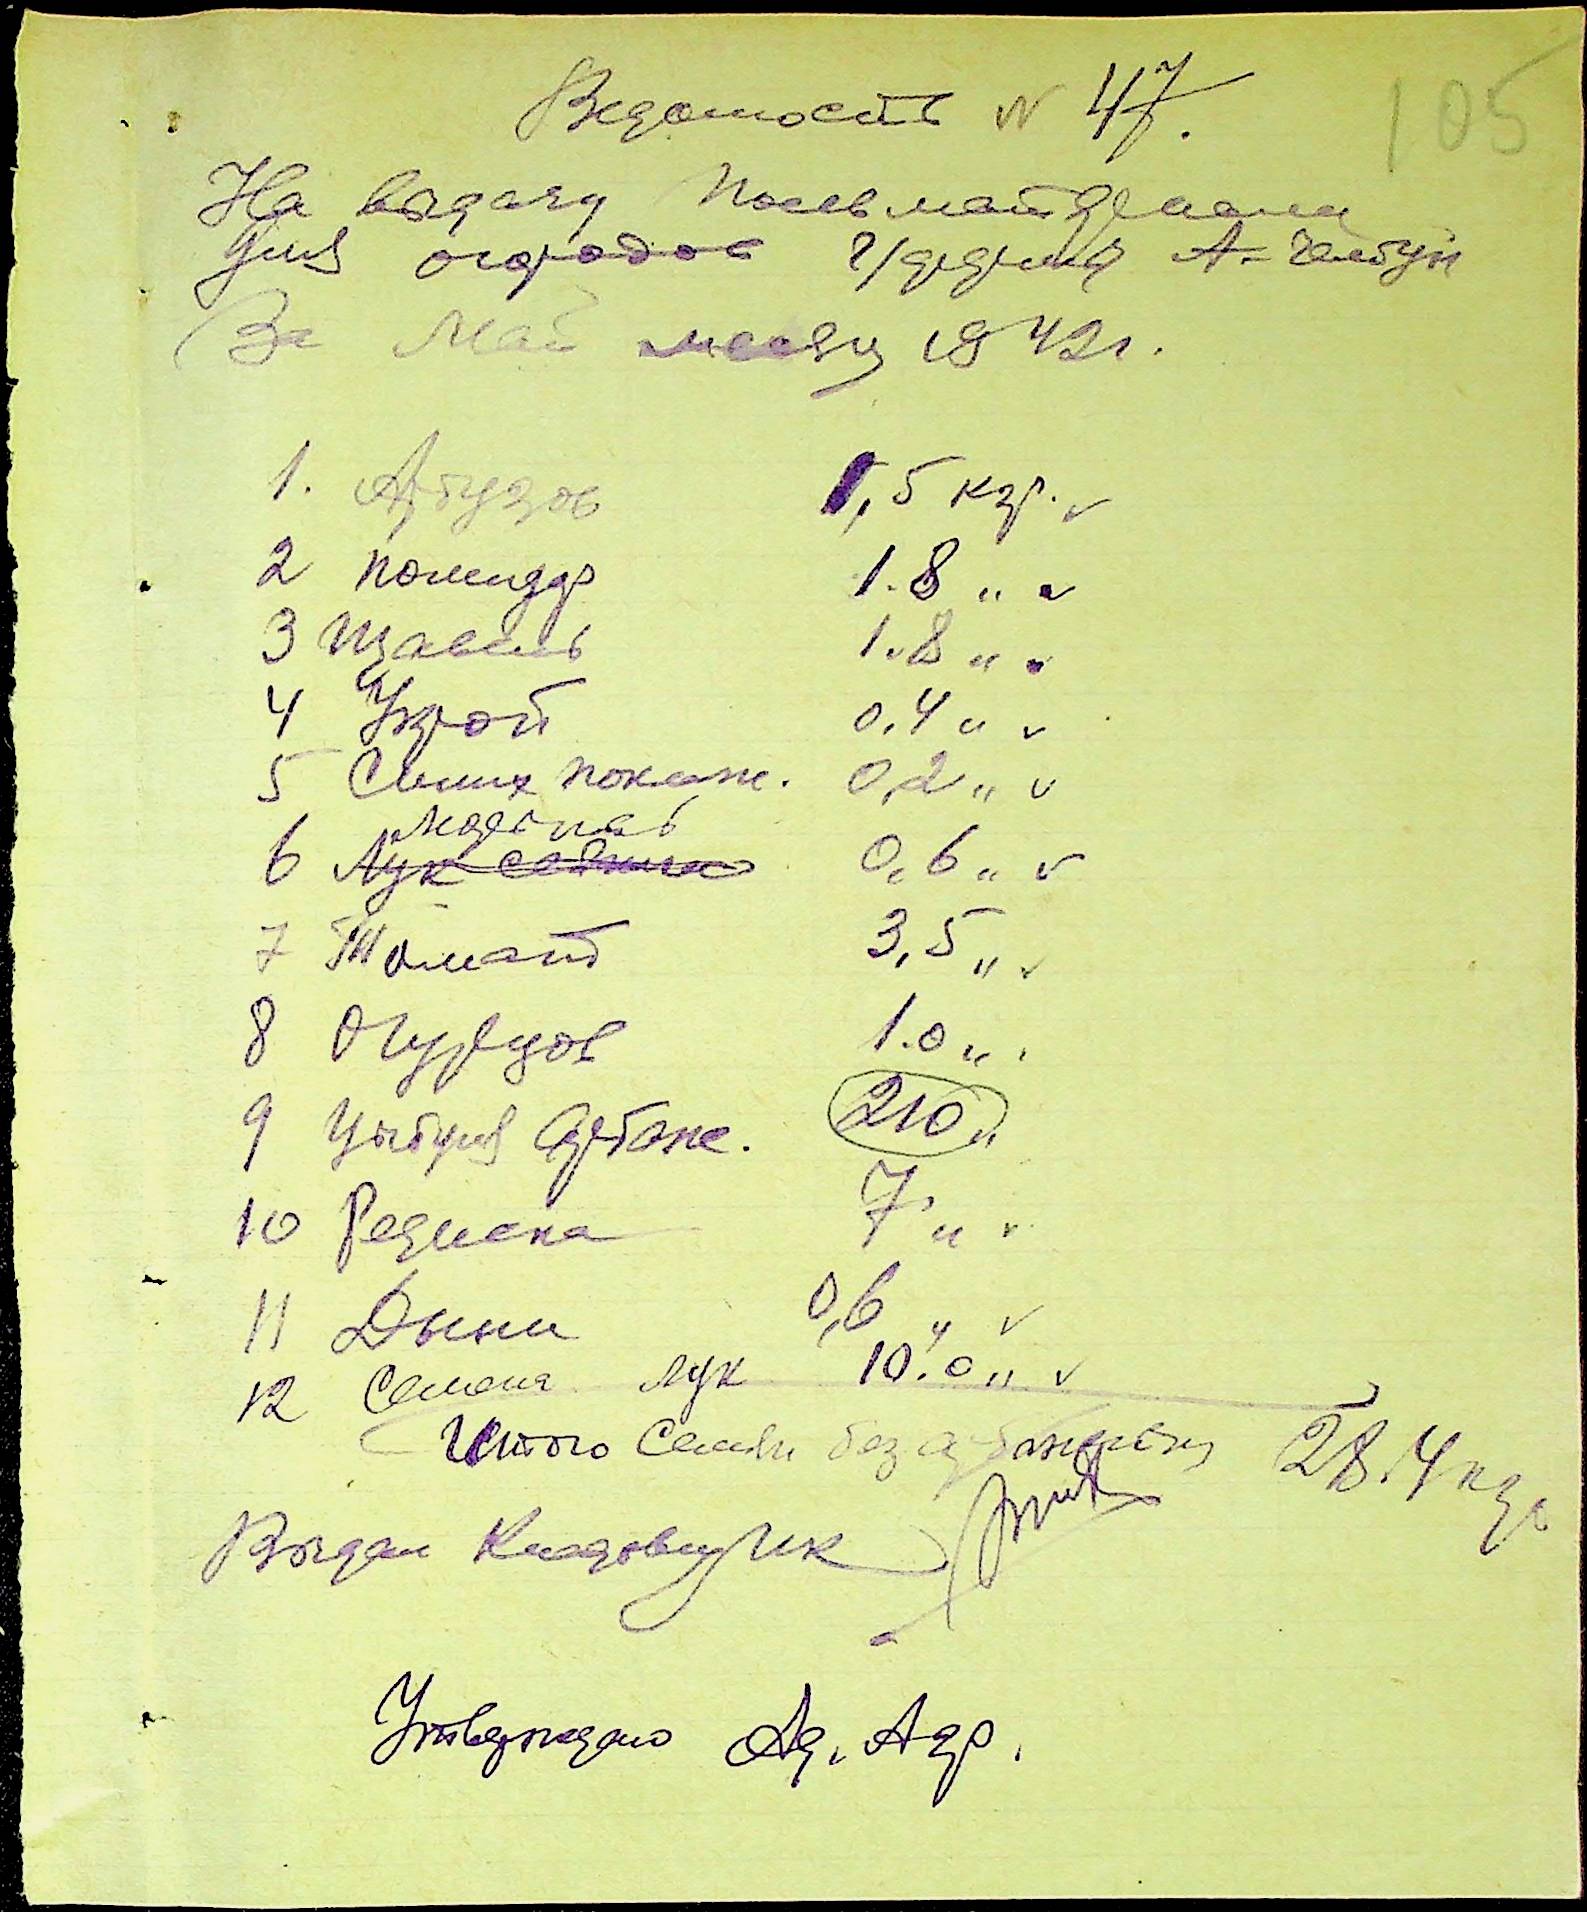 Ведомость N 47.
105
На выдачу посевматериала
для огородов
За Май месяц 1942 г.
1. Арбузов 1,5 кгр. v
2 помидор 1.8 " v
3 Щавель 1.8 " v
4 Укроп 0.4 " v
5 Синих покаж. 0,2 " v
6 ~~Лук сеянка~~ 0,6 " v
7 Томат 3,5 " v
8 Огурцов 1.0 "
9 Цыбуля Арбаже. 210 "
10 Редиска 7 " v
11 Дыни 0,6 " v
12 Семена лук 10.0 " v
Итого Семян без 28.4 кгр
Выдал Кладовщик
Утверждаю Аг. Агр.